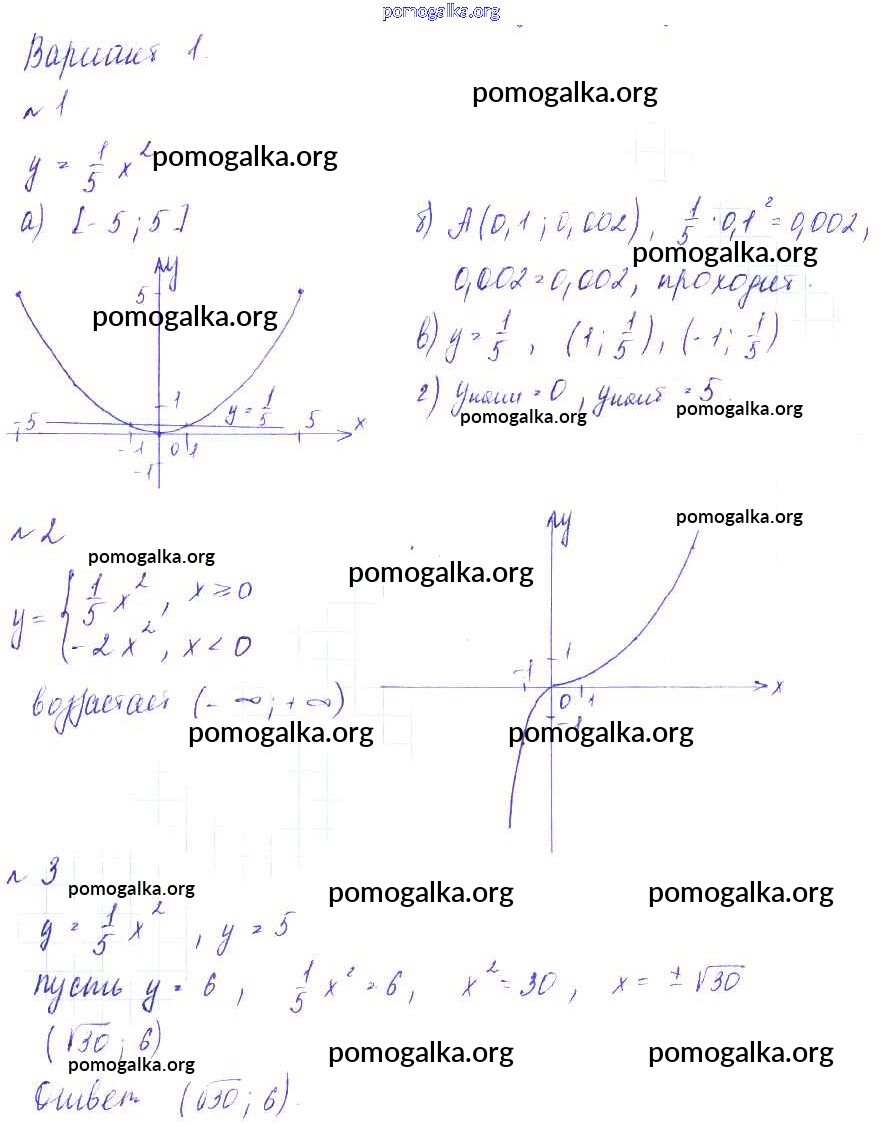 pomogalka.org
Вариант 1.
pomogalka.org
№ 1
y = 1/5 x² pomogalka.org
а) [-5; 5]
y
5
pomogalka.org
1
y = 1/5
-5
5
x
-1 0 1
-1
б) A(0,1; 0,002), 1/5 · 0,1² = 0,002,
pomogalka.org
0,002 = 0,002, проходит.
в) y = 1/5, (1; 1/5), (-1; 1/5)
г) yнаим = 0, yнаиб = 5.
pomogalka.org pomogalka.org
№ 2
pomogalka.org
pomogalka.org
pomogalka.org
y = { 1/5 x², x ≥ 0
-2x², x < 0
возрастает (-∞; +∞)
pomogalka.org pomogalka.org
y
1
-1
0 1
x
-1
№ 3
pomogalka.org pomogalka.org pomogalka.org
y = 1/5 x², y = 5
пусть y = 6, 1/5 x² = 6, x² = 30, x = ±√30
(√30; 6)
pomogalka.org pomogalka.org pomogalka.org
Ответ (√30; 6).